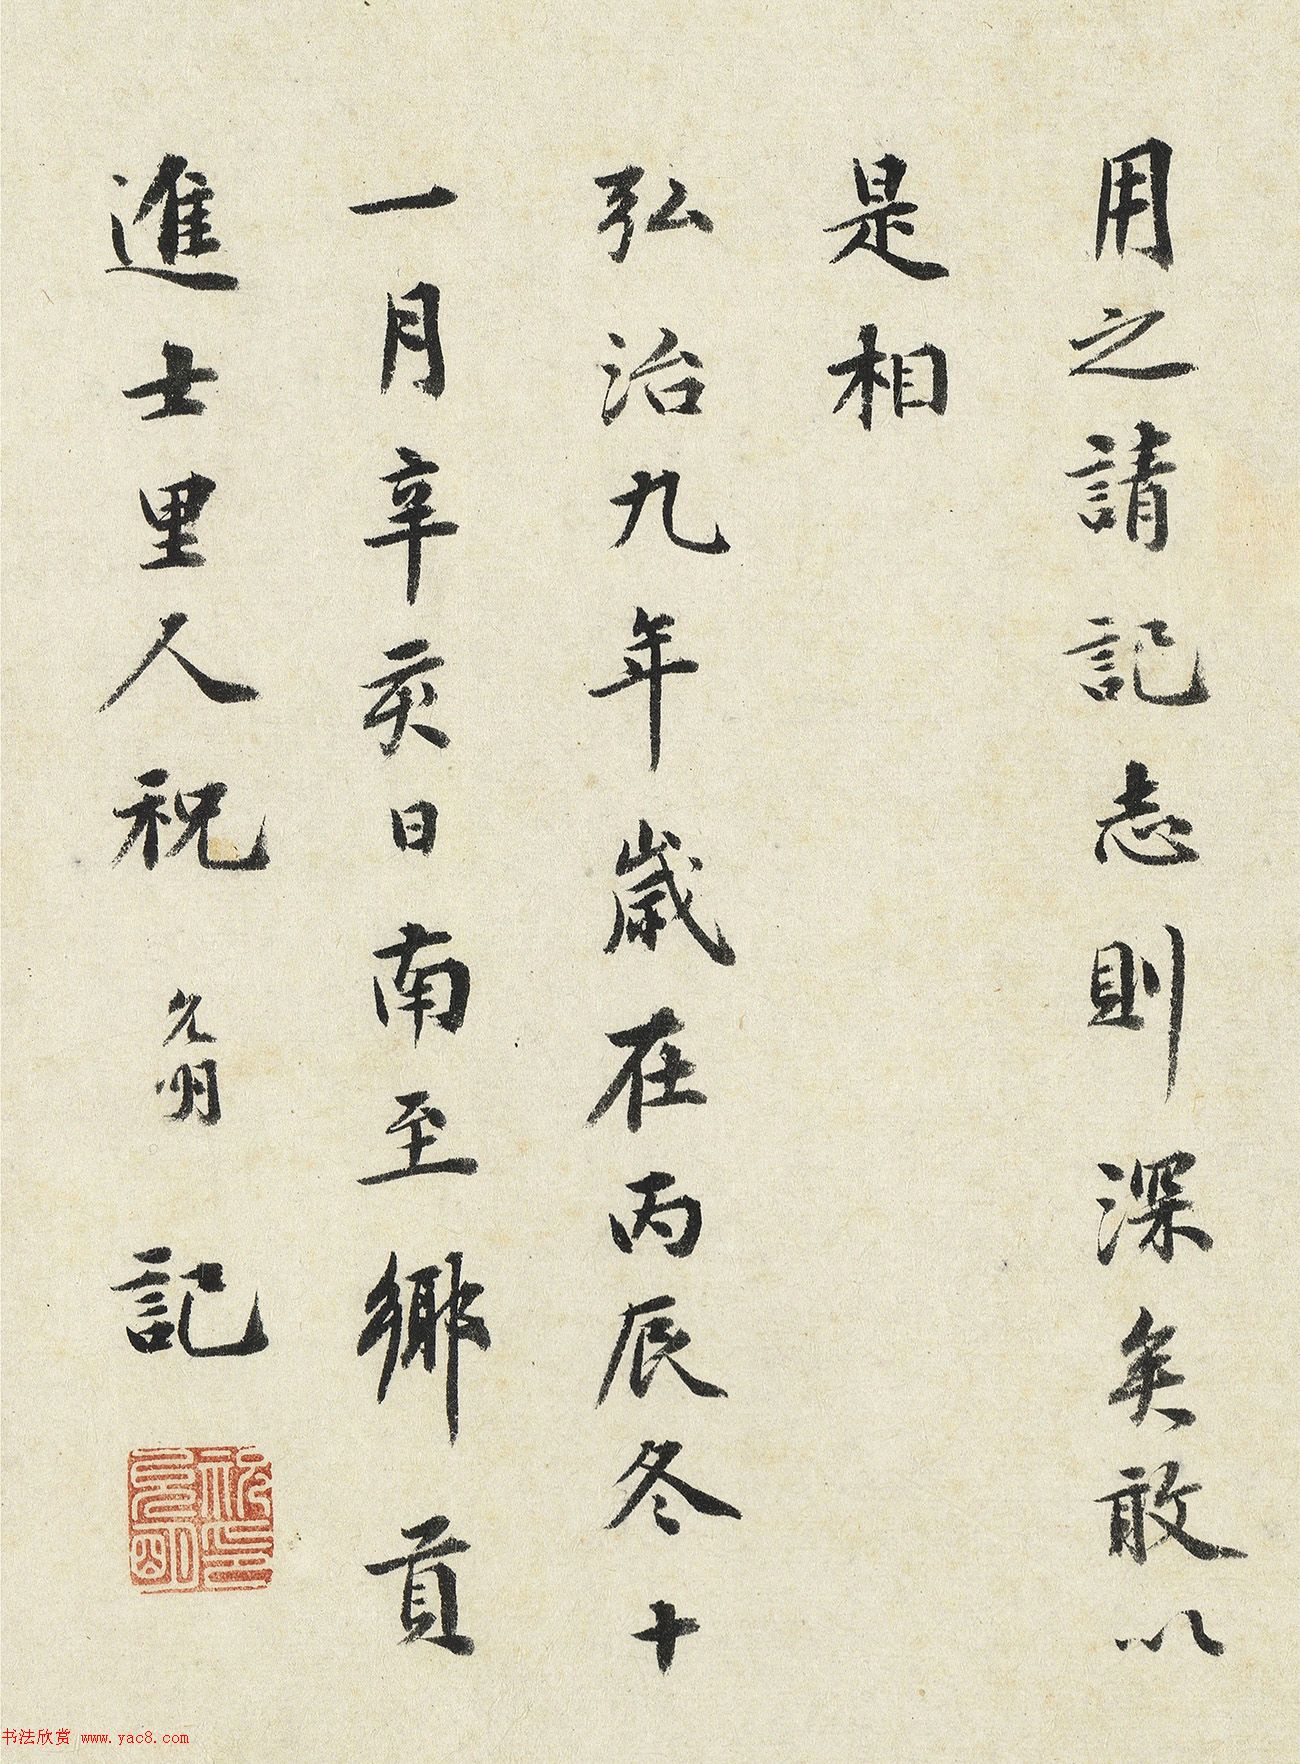 用之請記志則深矣敢以
是相
弘治九年歲在丙辰冬十
一月辛亥日南至鄉貢
進士里人祝允明記
祝允明印
书法欣赏 www.yac8.com